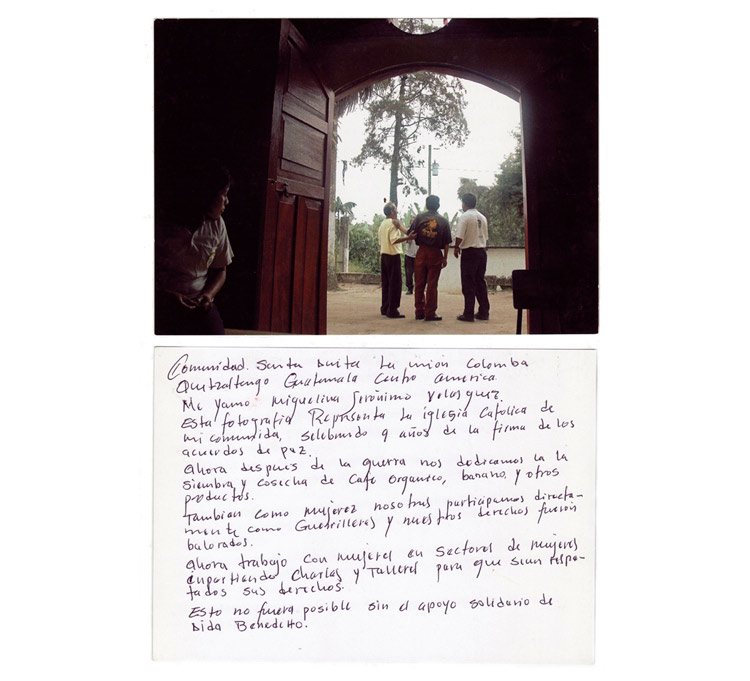 Comunidad. Santa Anita La unión Colomba
Quetzaltengo Guatemala Centro america
Me Yamo Miguelina Gerónimo Velasquez.
Esta fotografia Representa La iglesia Católica de
mi comunida, selebrando 9 años de la firma de los
acuerdos de paz.
ahora despues de la guerra nos dedicamos a la
siembra, y cosecha de Cafe organico, banano, y otros
productos.
Tambien como mujerez nosotras participamos directa-
mente como Guerrilleras y nuestros derechos fueron
balorados.
ahora trabajo con mujeres en sectores de mujeres
inpartiendo Charlas y Talleres para que sean respe-
tados sus derechos.
Esto no fuera posible sin el apoyo solidario de
Dida Benedetto.